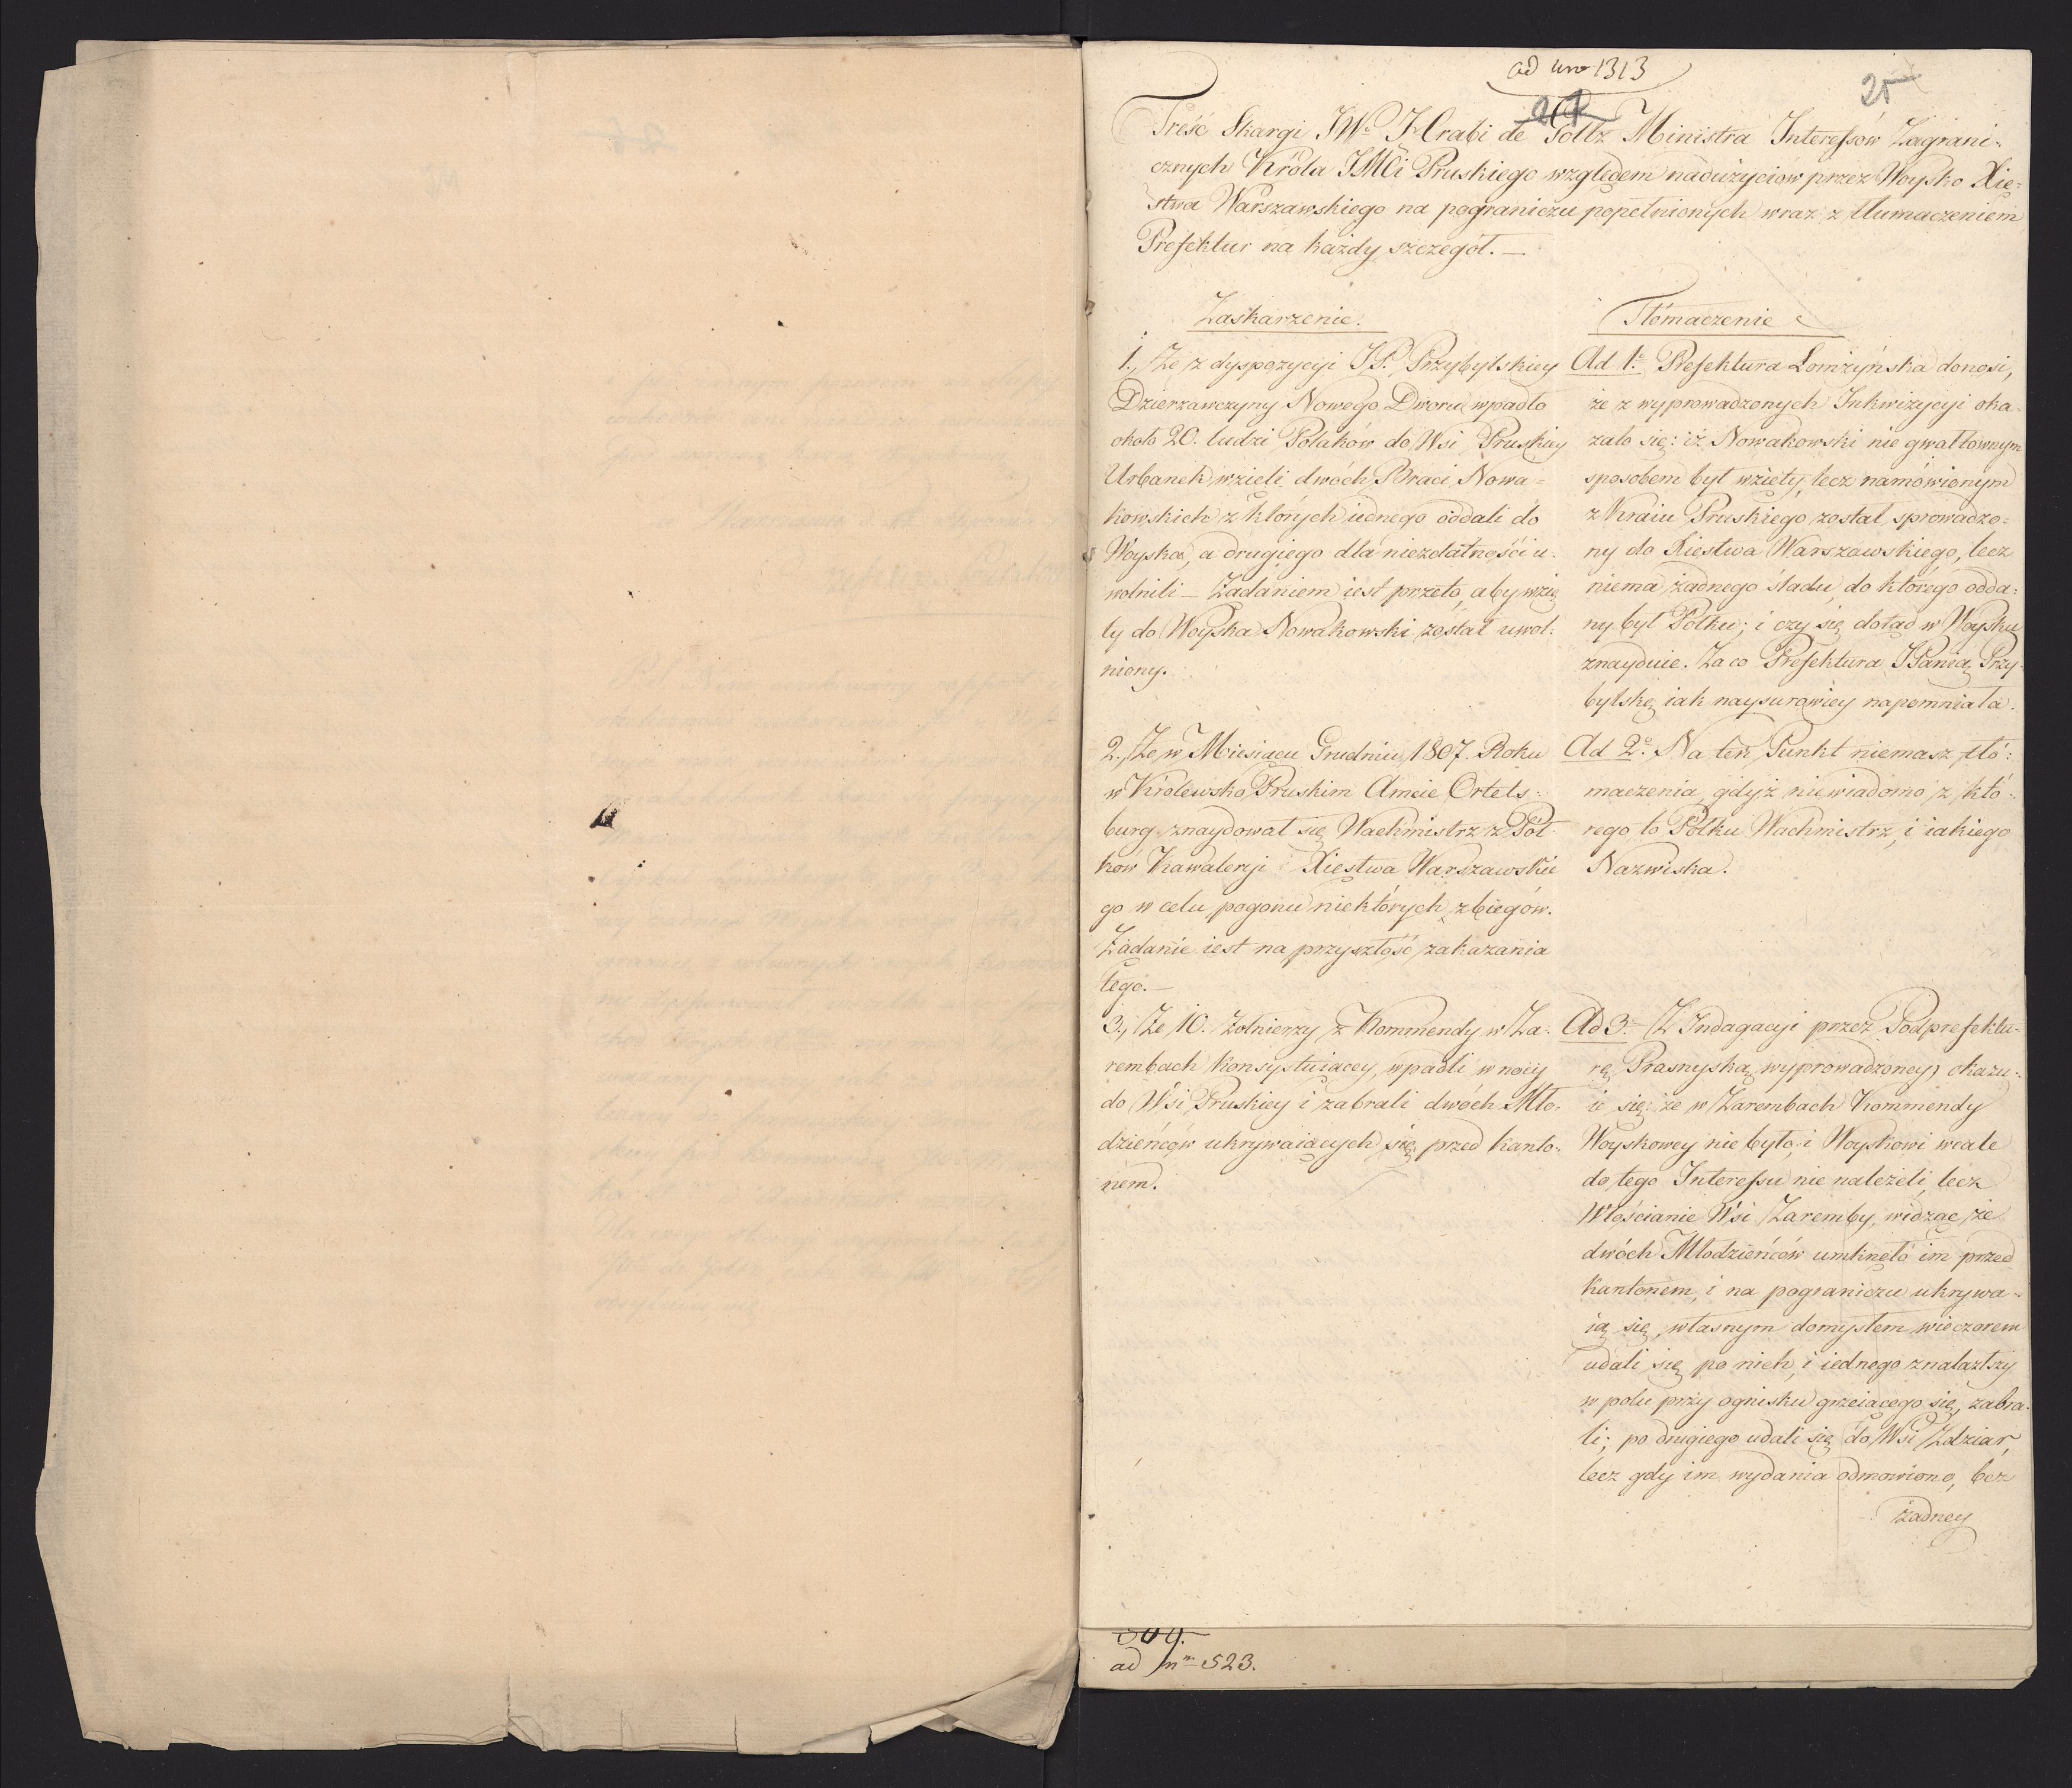 ad nro 1313
25
Treść Skargi JW. Hrabi de Goltz Ministra Interessów Zagrani-
cznych Króla JMCi Pruskiego względem nadużyciów przez Woysko Xię-
stwa Warszawskiego na pograniczu popełnionych wraz z tłumaczeniem
Prefektur na każdy szczegół. —
Zaskarzenie.
1., Że z dyspozycyi JP. Przybylskiey
Dzierzawczyny Nowego Dworu wpadło
około 20. ludzi Polaków do Wsi Pruskiey
Urbanek wzieli dwóch Braci Nowa-
kowskich z których iednego oddali do
Woyska, a drugiego dla niezdatności u-
wolnili — Żądaniem iest przeto, aby wzię
ty do Woyska Nowakowski został uwol-
niony.
2., Że w Miesiącu Grudniu 1807. Roku
w Królewsko Pruskim Amcie Ortels-
burg znaydował się Wachmistrz z Pół-
ków Kawaleryi Xięstwa Warszawskie
go w celu pogonu niektórych zbiegów.
Żądanie iest na przyszłość zakazania
tego. —
3., Że 10. Żołnierzy z Kommendy w Za-
rembach konsystuiącey, wpadli w nocy
do Wsi Pruskiey i zabrali dwóch Mło-
dzieńców ukrywaiących się przed kanto-
nem.
Tłómaczenie
Ad 1. Prefektura Łomżyńska donosi,
że z wyprowadzonych Inkwizycyi oka-
zało się: iż Nowakowski nie gwałtownym
sposobem był wzięty, lecz namówionym
z Kraiu Pruskiego został, sprowadzo-
ny do Xięstwa Warszawskiego, lecz
niema żadnego śladu, do którego odda-
ny był Półku; i czy się dotąd w Woysku
znayduie. Za co Prefektura JPanią Przy-
bylską iak naysurowiey napomniała.
Ad 2o. Na ten Punkt niemasz tłó-
maczenia, gdyż niewiadomo z któ-
rego to Półku Wachmistrz, i iakiego
Nazwiska.
Ad 3. Z Indagacyi przez Podprefektu-
rę Prasnyską wyprowadzoney, okazu-
ie się: że w Zarembach Kommendy
Woyskowey nie było, i Woyskowi wcale
do tego Interessu nie należeli, lecz
Włościanie Wsi Zaremby, widząc że
dwóch Młodzieńców umknęło im przed
kantonem, i na pograniczu ukrywa-
ią się, własnym domysłem wieczorem
udali się po nich, i iednego znalazłszy
w polu przy ognisku grzeiącego się, zabra-
li; po drugiego udali się do Wsi Zdziar,
lecz gdy im wydania odmowiono, bez
żadney
ad nm 523.